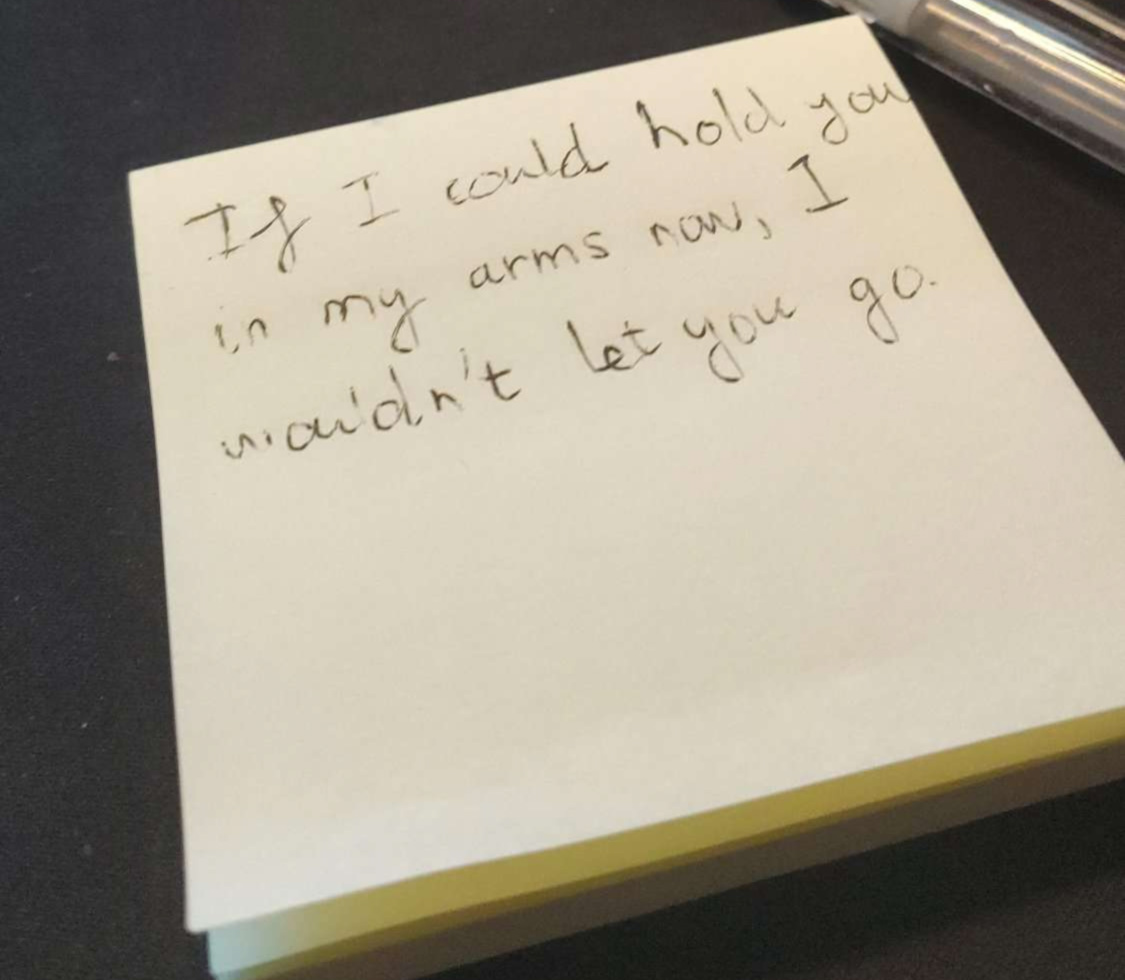 If I could hold you
in my arms now, I
wouldn't let you go.